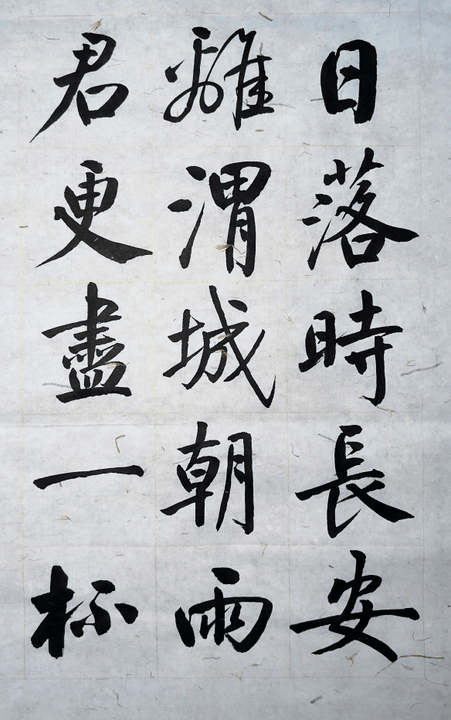 日落時長安
離渭城朝雨
君更盡一杯